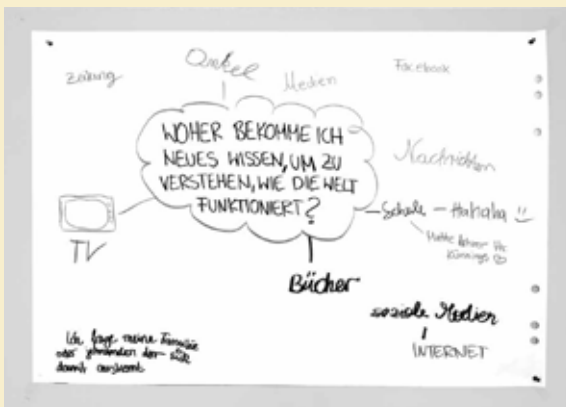 Zeitung
Onkel
Medien
Facebook
WOHER BEKOMME ICH
NEUES WISSEN, UM ZU
VERSTEHEN, WIE DIE WELT
FUNKTIONIERT?
Nachrichten
Schule – Hahaha
Mathe Lehrer Hr.
TV
Bücher
soziale Medien
INTERNET
Ich frage meine Familie
oder jemanden der sich
damit auskennt